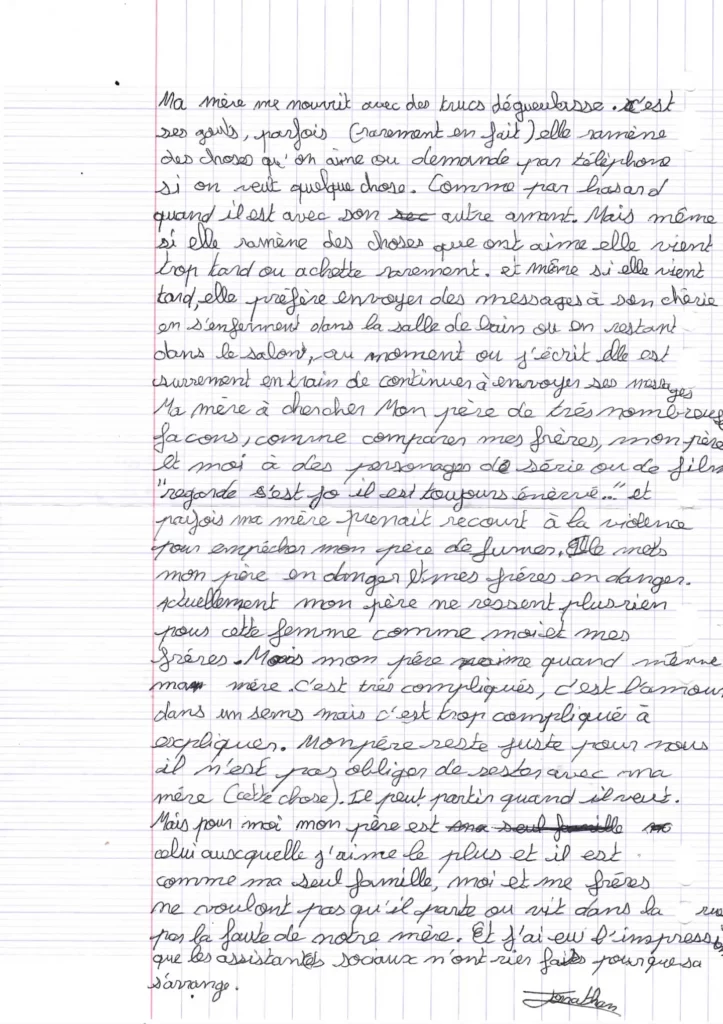 Ma mère me nourrit avec des trucs dégueulasse. c'est
ses gouts, parfois (rarement en fait) elle ramène
des choses qu'on aime ou demande par téléphone
si on veut quelque chose. Comme par hasard
quand il est avec son autre amant. Mais même
si elle ramène des choses que ont aime elle vient
trop tard ou achette rarement. et même si elle vient
tard, elle préfère envoyer des messages à son chérie
en s'enfermant dans la salle de bain ou en restant
dans le salon, au moment ou j'écrit elle est
surrement en train de continuer à envoyer ses messages
Ma mère à chercher Mon père de trés nombreus
facons, comme comparer mes frères, mon père
et moi à des personages de série ou de film
"regarde s'est jo il est toujours énervé..." et
parfois ma mère prenait recourt à la violence
pour empécher mon père de fumer. Elle mets
mon père en danger et mes fréres en danger.
Actuellement mon père ne ressent plus rien
pour cette femme comme moi et mes
fréres. Mais mon pére aime quand même
ma mére. C'est trés compliqués, c'est l'amour
dans un sens mais c'est trop compliqué à
expliquer. Mon pére reste juste pour nous
il n'est pas obliger de rester avec ma
mére (cette chose). Il peut partir quand il veut.
Mais pour moi mon père est
celui auxquelle j'aime le plus et il est
comme ma seul famille, moi et me fréres
ne voulont pas qu'il parte ou vit dans la rue
par la faute de notre mère. Et j'ai eu l'impressi
que les assistants sociaux n'ont rien faits pour que sa
s'arrange.
Jonathan